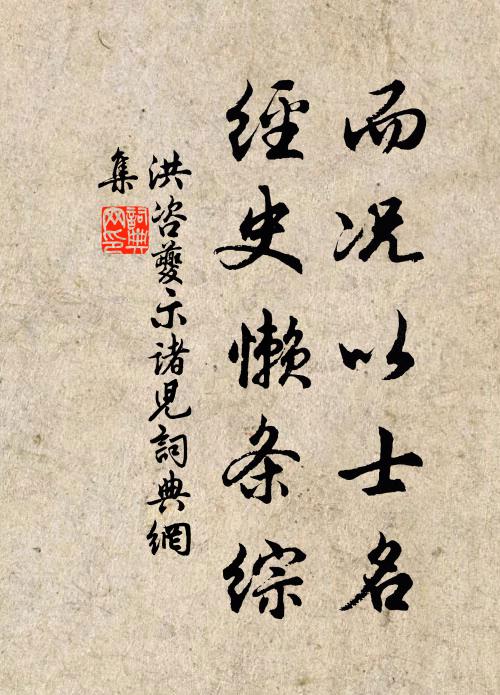 而况以士名
經史懒条综
洪咨夔示诸児詞典網
集
詞典
网印